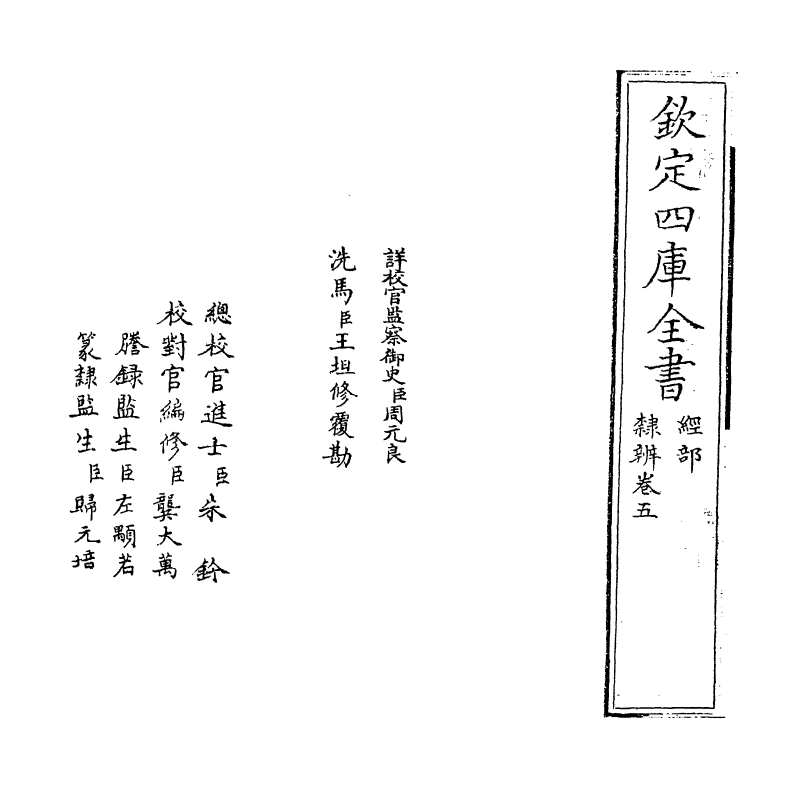 欽定四庫全書
經部
隸辨卷五
詳校官監察御史臣周元良
洗馬臣王坦修覆勘
總校官進士臣朱鈐
校對官編修臣龔大萬
謄録監生臣左顯若
篆隸監生臣歸元培